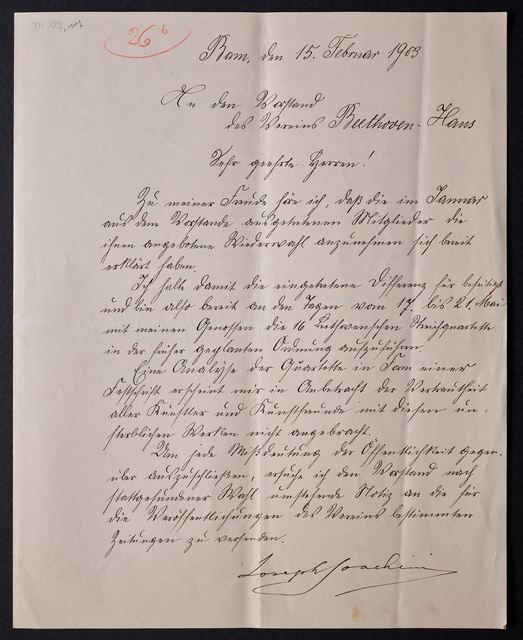 26 b
Bonn, den 15. Februar 1903
An den Vorstand
des Vereins Beethoven-Haus
Sehr geehrte Herren!
Zu meiner Freude höre ich, daß die im Januar
aus dem Vorstande ausgetretenen Mitglieder die
ihnen angebotene Wiederwahl anzunehmen sich bereit
erklärt haben.
Ich halte damit die eingetretene Differenz für beseitigt
und bin also bereit an den Tagen vom 17 bis 21. Mai
mit meinen Genossen die 16 Beethovenschen Streichquartette
in der früher geplanten Ordnung aufzuführen.
Eine Analyse der Quartette in Form einer
Festschrift erscheint mir in Anbetracht der Vertrautheit
aller Künstler und Kunstfreunde mit diesen un-
sterblichen Werken nicht angebracht.
Um jede Mißdeutung der Öffentlichkeit gegen-
über auszuschließen, ersuche ich den Vorstand nach
stattgefundener Wahl umstehende Notiz an die für
die Veröffentlichungen des Vereins bestimmten
Zeitungen zu versenden.
Joseph Joachim